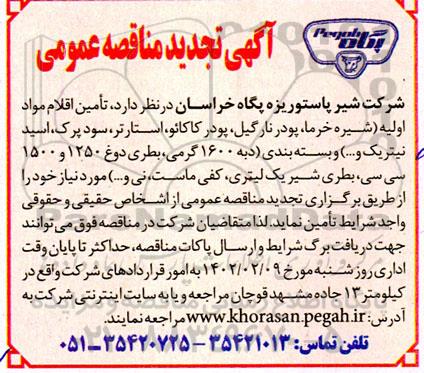 Pegah
پگاه
آگهی تجدید مناقصه عمومی
شرکت شیر پاستوریزه پگاه خراسان در نظر دارد، تأمین اقلام مواد
اولیه (شیره خرما، پودر نارگیل، پودر کاکائو، استارتر، سود پرک، اسید
نیتریک و...) و بسته بندی (دبه ۱۶۰۰ گرمی، بطری دوغ ۱۲۵۰ و ۱۵۰۰
سی سی، بطری شیر یک لیتری، کفی ماست، نی و...) مورد نیاز خود را
از طریق برگزاری تجدید مناقصه عمومی از اشخاص حقیقی و حقوقی
واجد شرایط تأمین نماید. لذا متقاضیان شرکت در مناقصه فوق می توانند
جهت دریافت برگ شرایط و ارسال پاکات مناقصه، حداکثر تا پایان وقت
اداری روز شنبه مورخ ۱۴۰۲/۰۲/۰۹ به امور قراردادهای شرکت واقع در
کیلومتر ۱۳ جاده مشهد قوچان مراجعه و یا به سایت اینترنتی شرکت به
آدرس: www.khorasan.pegah.ir مراجعه نمایند.
تلفن تماس: ۳۵۴۲۱۰۱۳ - ۳۵۴۲۰۷۲۵ - ۰۵۱